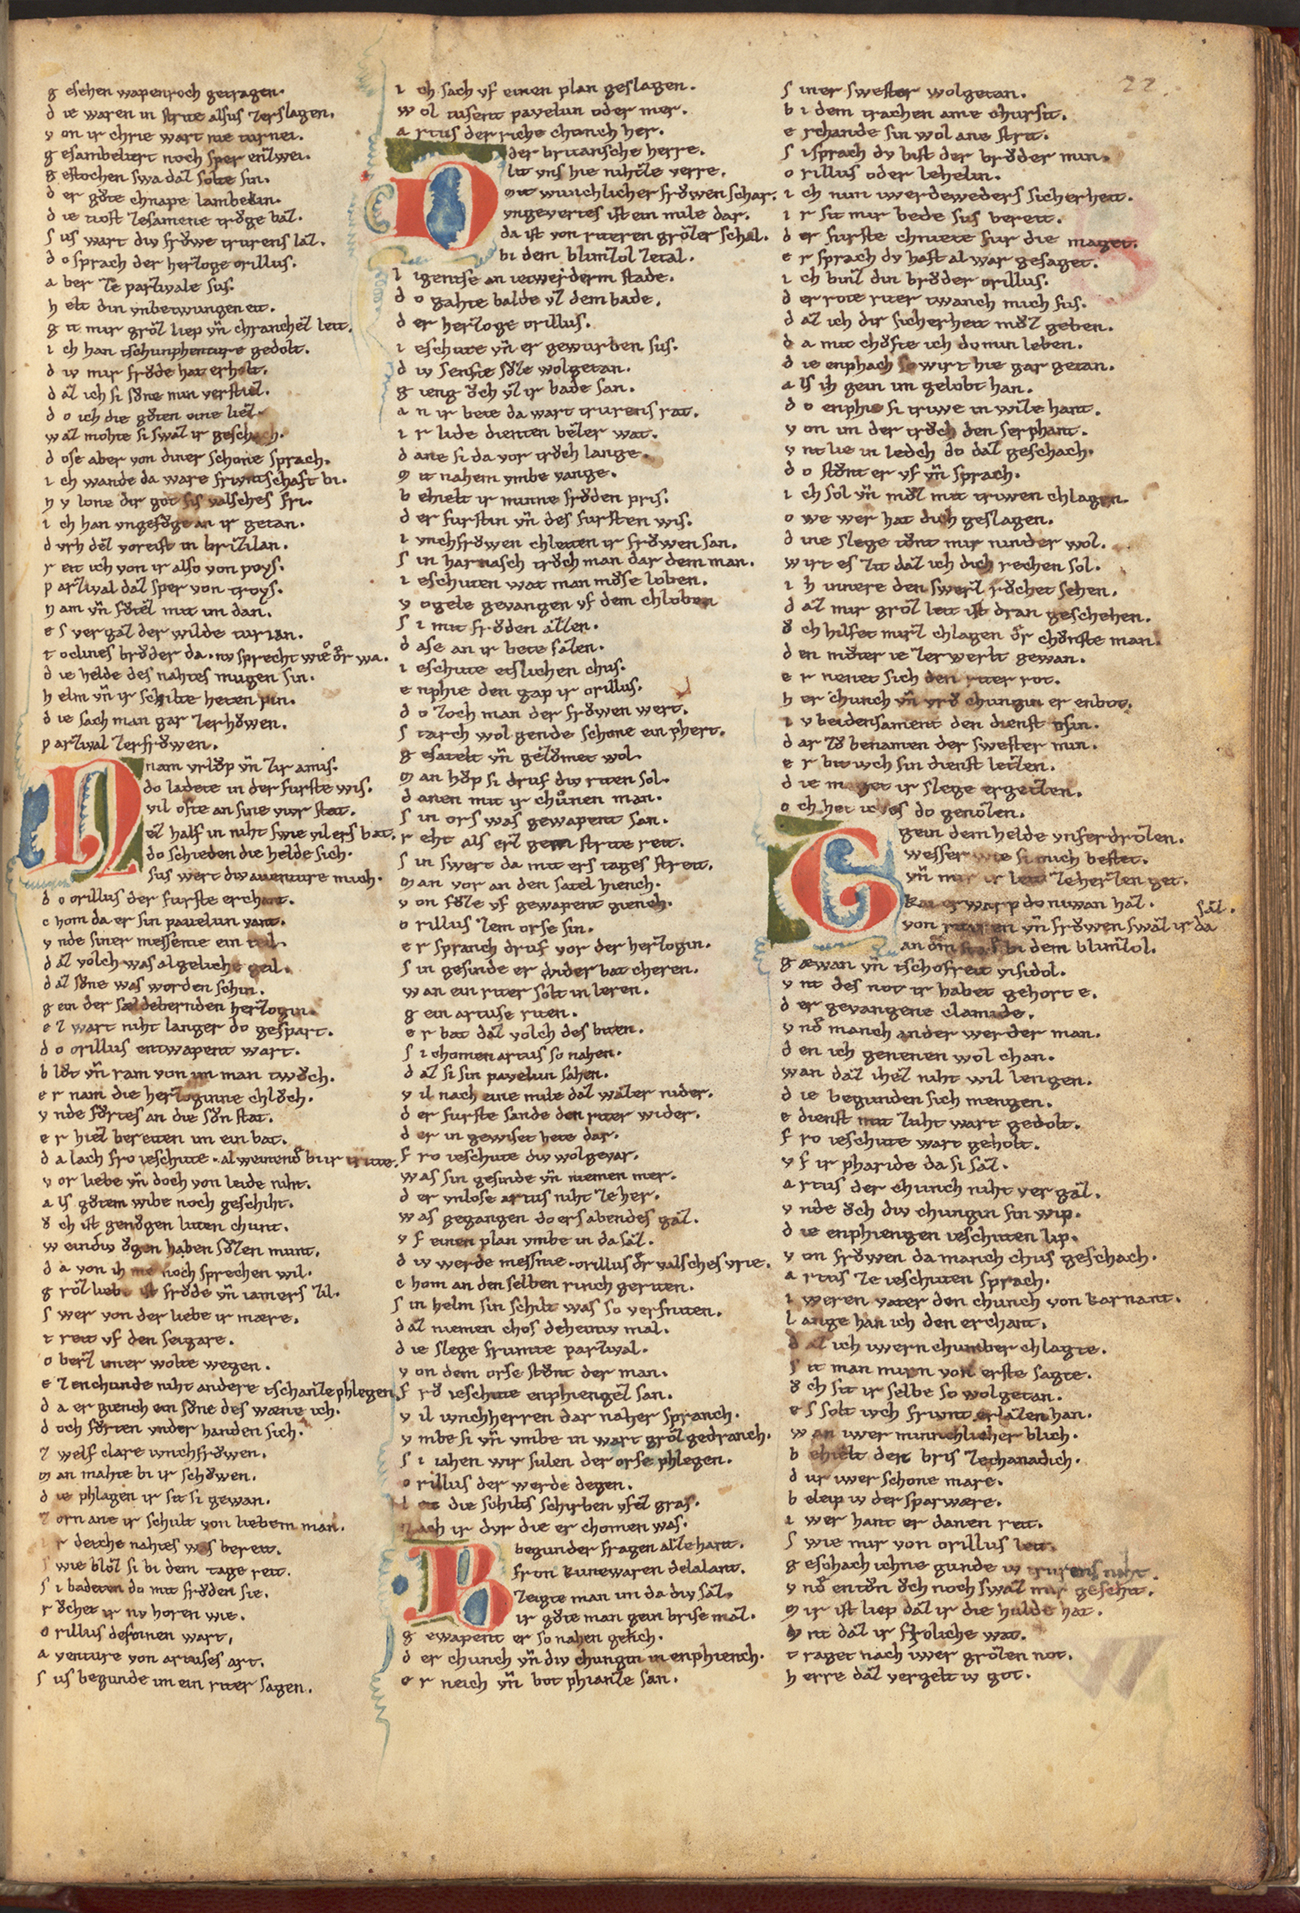 22.
g esehen wapenroch getragen.
d ie waren in strite alsus zerslagen.
v on ir chrie wart nie turnei.
g esambeliert noch sper enzwei.
g estochen swa daz solte sin.
d er gůte chnape lambekin.
d ie tiost zesamene trůge baz.
s us wart div frǒwe trurens laz.
d o sprach der herzoge orillus.
a ber ze parzivale sus.
h elt din vnbetwungen eit.
g it mir groz liep vn̄ chranchez leit.
i ch han tschunphenture gedolt.
d iv mir frǒde hat erholt.
d az ich si sone min verstiez.
d o ich die gůten eine liez.
w az mohte si swaz ir geschach.
d ose aber von diner schone sprach.
i ch wande da ware friwntschaft bi.
n v lone dir got sis valsches fri.
i ch han vngefůge an ir getan.
d vrh dez voreist in brizilan.
r eit ich von ir also von poys.
p arzival daz sper von troys.
n am vn̄ fůrtez mit im dan.
e s vergaz der wilde turian.
t ochnes brůder da. nv sprecht wie oder wa.
d ie helde des nahtes mugen sin.
h elm vn̄ ir schilte heten pin.
d ie sach man gar zerhǒwen.
p arzival zer frǒwen.
nam vrlǒp vn̄ zir amis.
do ladete in der furste wis.
vil ofte an sine viur stat.
ez half in niht swie vil ers bat.
do schieden die helde sich.
sus wert div auenture mich.
d o orillus der furste erchant.
c hom da er sin pauelun vant.
v nde siner messenie ein teil.
d az volch was al geliche geil.
d az sone was worden schin.
g ein der sældebernden herzogin.
e z wart niht langer do gespart.
d o orillus entwapent wart.
b lǒt vn̄ ram von im man twǒch.
e r nam die herzoginne chlǒch.
v nde fǒrtes an die sǒn stat.
e r hiez bereiten im ein bat.
d a lach fro ieschute. al weinende bi ir
v or liebe vn̄ doch von leide niht.
a ls gǒtem wibe noch geschiht.
ǒ ch ist genǒgen luten chunt.
w eindiv ǒgen haben sǒzen munt.
d a von ih me noch sprechen wil.
g roz liebe ist frǒde vn̄ iamers zil.
s wer von der liebe ir mære.
t reit vf den seigare.
o berz imer wolte wegen.
e zenchunde niht andere tschanze phlegen.
d a er giench ein sǒne des wæne ich.
d och fǒrten vnder handen sich.
z welf clare ivnchfrǒwen.
m an mahte bi ir schǒwen.
d ie phlagen ir sit si gewan.
z orn ane ir schult von liebem man.
i r deiche nahtes was bereit.
s wie bloz si bi dem tage reit.
s i badeten do mit frǒden sie.
r ǒchet ir nv horen wie.
o rillus desoinen wart,
a venture von artuses art.
s us begunde im ein riter sagen.
i ch sach vf einen plan geslagen.
w ol tusent pavelun oder mer.
a rtus der riche chunch her.
der britansche herre.
lit vns hie nihtze verre.
mit wunchlicher frǒwen schar.
vngevertes ist ein mile dar.
da ist von riteren grǒzer schal.
bi dem blimzol zetal.
l igentse an ietwederm stade.
d o gahte balde vz dem bade.
d er herzoge orillus.
i eschute vn̄ er gewurben sus.
d iv senfte sǒze wolgetan.
g ieng ǒch vz ir bade san.
a n ir bete da wart trurens rat.
i r lide dienten bezer wat.
d ane si da vor trǒch lange.
m it nahem vmbe vange.
b ehielt ir minne frǒden pris.
d er furstin vn̄ des fursten wis.
i vnchfrǒwen chleiten ir frǒwen san.
s in harnasch trǒch man dar dem man.
i eschuten wat man mǒse loben.
v ogele gevangen vf dem chloben
s i mit frǒden azen.
d ase an ir bete sazen.
i eschute etslichen chus.
e nphie den gap ir orillus.
d o zoch man der frǒwen wert.
s tarch wol gende schone ein phert.
g esatelt vn̄ gezǒmet wol.
m an hǒp si druf div riten sol.
d anen mit ir chunen man.
s in ors was gewapent san.
r eht als erz gein strite reit.
s in swert da mit ers tages streit.
m an vor an den satel hiench.
v on fǒze vf gewapent giench.
o rillus zem orse sin.
e r spranch druf vor der herzogin.
s in gesinde er widerbat cheren.
w an ein riter solt in leren.
g ein artuse riten.
e r bat daz volch des biten.
s i chomen artus so nahen.
d az si sin pavelun sahen.
v il nach eine mile daz wazer nider.
d er furste sande den riter wider.
d er in gewiset hete dar.
f ro ieschute div wolgevar.
w as sin gesinde vn̄ niemen mer.
d er vnlose artus niht ze her.
w as gegangen do ers abendes gaz.
v f einen plan vmbe in da saz.
d iv werde messnie. orillus der valsches vrie.
c hom an den selben rinch geriten.
s in helm sin schilt was so versniten.
d az niemen chos deheiniv mal.
d ie slege frumte parzival.
v on dem orse stǒnt der man.
f ro ieschute enphiengez san.
v il ivnchherren dar naher spranch.
v mbe si vn̄ vmbe in wart groz gedranch.
s i iahen wir sulen der orse phlegen.
o rillus der werde degen.
l eit die schilts schirben vfez gras.
n ach ir dvr die er chomen was.
begunder fragen alzehant.
fron kunewaren delalant.
zeigte man im da div saz.
ir gǒte man gein brise maz.
g ewapent er so nahen gelich.
d er chunch vn̄ div chungin in enphiench.
e r neich vn̄ bot phianze san.
s iner swester wolgetan.
b i dem trachen ame churseit.
e rchande sin wol ane strit.
s i sprach dv bist der brǒder min.
o rillus oder lehelin.
i ch nim iwerdeweders sicherheit.
i r sit mir bede sus bereit.
d er furste chniete fur die maget.
e r sprach dv hast al war gesaget.
i ch binz din brǒder orillus.
d er rote riter twanch mich sus.
d az ich dir sicherheit mǒz geben.
d a mit chǒfte ich do min leben.
d ie enphach so wirt hie gar getan.
a ls ih gein im gelobt han.
d o enphie si triwe in wize hant.
v on im der trǒch den serphant.
v nt lie in ledch do daz geschach.
d o stǒnt er vf vn̄ sprach.
i ch sol vn̄ mǒz mit triwen chlagen.
o we wer hat dich geslagen.
d ine slege tǒnt mir ninder wol.
w irt es zit daz ich dich rechen sol.
i h innere den swerz rǒchet sehen.
d az mir groz leit ist dran geschehen.
ǒ ch hilfet mirz chlagen der chǒnste man.
d en mǒter ie zer werlt gewan.
e r nenet sich den riter rot.
h er chunch vn̄ vrǒ chungin er enbot.
i v beidensament den dienst sin.
d ar zǒ benamen der swester min.
e r bit ivch sin dienst leizen.
d ie maget ir slege ergeizen.
o ch het ich es do genozen.
gein dem helde vnferdrozen.
wesser wie si mich bestet.
vn̄ mir ir leit ze herzen get.
kai erwarp do niwan haz.
von riteren vn̄ frǒwen swaz ir da saz.
an bi dem blimizol.
g æwan vn̄ tschofreit vfisidol.
v nt des not ir habet gehort e.
d er gevangene clamide.
v nd manch ander werder man.
d en ich genenen wol chan.
w an daz ihez niht wil lengen.
d ie begunden sich mengen.
e dienst mit zuht wart gedolt.
f ro ieschute wart geholt.
v f ir pharide da si saz.
a rtus der chunch niht vergaz.
v nde ǒch div chungin sin wip.
d ie enphiengen ieschuten lip.
v on frǒwen da manch chus geschach.
a rtus ze ieschuten sprach.
i weren vater den chunch von karnant.
l ange han ich den erchant.
d az ich iwern chumber chlagte.
s it man mirn von erste sagte.
ǒ ch sit ir selbe so wolgetan.
e s solt ivch friwnt erlazen han.
w an iwer minnichlicher blich.
b ehielt den bris zechanadich.
d ur iwer schone mare.
b eleip iv der sparwære.
i wer hant er danen reit.
s wie mir von orillus leit.
g eschach ichne gunde iv trurens niht.
v nd entǒn ǒch noch swaz mir geschit.
m ir ist liep daz ir die hulde hat.
v nt daz ir froliche wat.
t raget nach iwer grǒzen not.
h erre daz vergelt iv got.